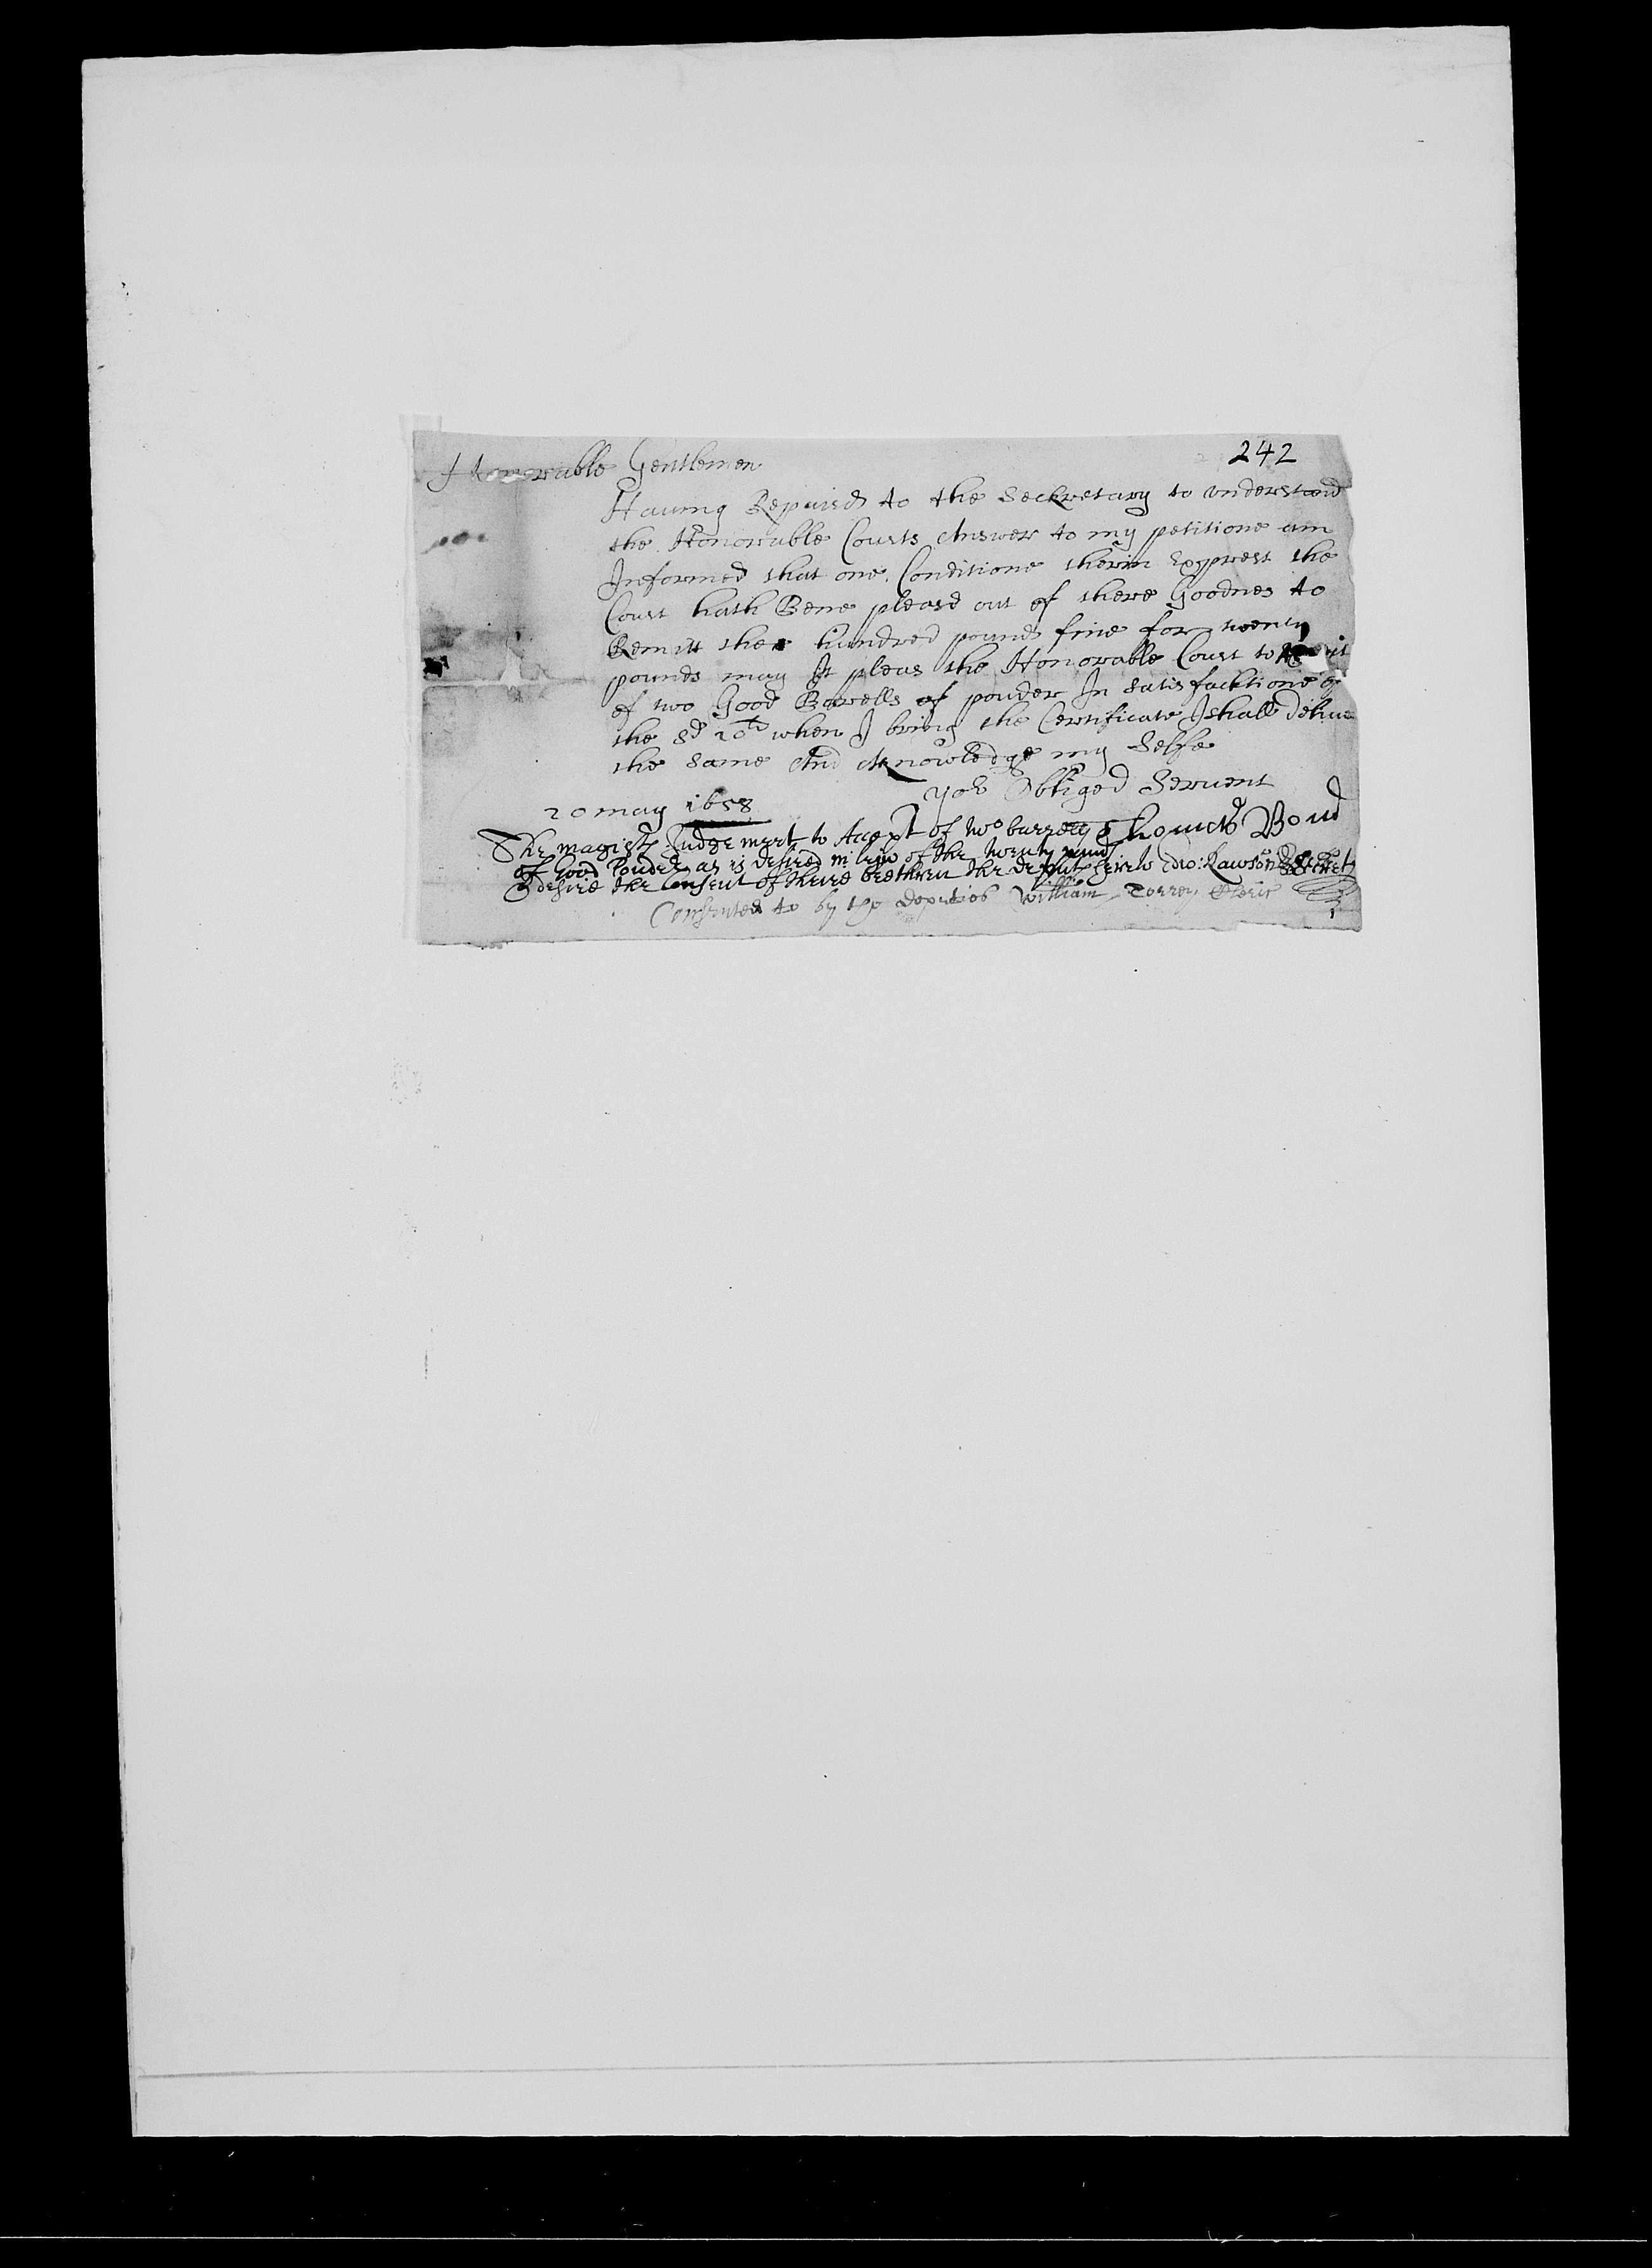 242
Honorable Gentlemen
Hauing Repaired to the Seckretary to vnderstand
the Honorable Courts Answer to my petitione am
Informed that one Conditione therin Exprest the
Court hath Bene pleasd out of there Goodnes to
Remitt the hundred pound fine for twenty
pounds may It pleas the Honorable Court to
of two Good Barells of pouder In satisfacktione of
the sd 20td when I bring the Certificate I shall deliuer
the same And Acknowledge my Selfe
yor Obliged Seruent
20 may 1658
Thomas Bond
The magists Judge meet to Accept of two barrells
of Good Pouder as is desired in liew of the twenty pounds
& desire the Consent of theire brethren the deputs hereto Edw: Rawson Secrety
Consented to by the deputies William Torrey Cleric